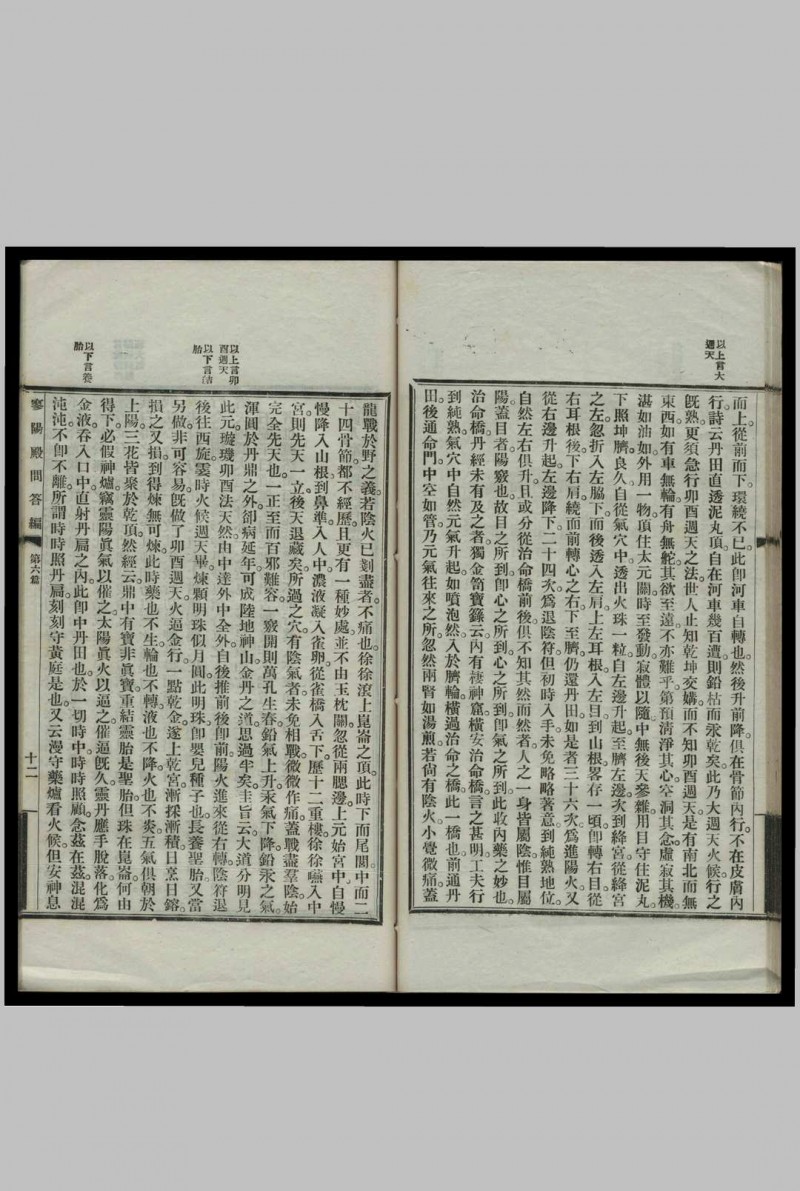 以上言大
週天
而上從前而下環繞不已此卽河車自轉也然後升前降俱在骨節內行不在皮膚內
行詩云丹田直透泥丸頂自在河車幾百遭則鉛枯而汞乾矣此乃大週天火候行之
旣熟更須急行卯酉週天之法世人止知乾坤交媾而不知卯酉週天是有南北而無
東西如有車無輪有舟無舵其欲至遠不亦難乎第預淸淨其心空洞其念虛寂其機
湛如油如外用一物頂住太元關時至發動寂體以隨中無後天參雜用目守住泥丸
下照坤臍良久自從氣穴中透出火珠一粒自左邊升起至臍左邊次到絳宮從絳宮
之左忽折入左脇下而後透入左肩上左耳根入左目到山根畧存一頃卽轉右目從
右耳根後下右肩繞而前轉心之右下至臍仍還丹田如是者三十六次爲進陽火又
從右邊升起左邊降下二十四次爲退陰符但初時入手未免略略著意到純熟地位
自然左右俱升且或分從治命橋前後俱不知其然而然者人之一身皆屬陰惟目屬
陽蓋目者陽竅也故目之所到卽心之所到心之所到卽氣之所到此收內藥之妙也
治命橋丹經未有及之者獨金笥寶籙云內有棲神窟橫安治命橋言之甚明工夫行
到純熟氣穴中自然元氣升起如噴泡然入於臍輪橫過治命之橋此一橋也前通丹
田後通命門中空如管乃元氣往來之所忽然兩腎如湯煎若尙有陰火小覺微痛蓋
以上言卯
酉週天
以下言結
胎
以下言養
胎
龍戰於野之義若陰火已剝盡者不痛也徐徐滾上崑崙之頂此時下而尾閭中而二
十四骨節都不經歷且更有一種妙處並不由玉枕關忽從兩腮邊上元始宮中自慢
慢降入山根到鼻準入人中濃液凝入雀卵從雀橋入舌下歷十二重樓徐徐嚥入中
宮則先天一立後天退藏矣所過之穴有陰氣者未免相戰微微作痛蓋戰盡羣陰始
完全先天也一正至而百邪難容一竅開則萬孔生春鉛氣上升汞氣下降鉛汞之氣
渾圓於丹鼎之外卻病延年可成陸地神山金丹之道思過半矣圭旨云大道分明見
此元璇璣卯酉法天然由中達外中全外自後推前後卽前陽火進來從右轉陰符退
後往西旋霎時火候週天畢煉顆明珠似月圓此明珠卽嬰兒種子也長養聖胎又當
另做非可容易旣做了卯酉週天火逼金行一點乾金遂上乾宮漸採漸積日烹日鎔
損之又損到得煉無可煉此時藥也不生輪也不轉液也不降火也不炎五氣俱朝於
上陽三花皆聚於乾頂然經云鼎中有寶非眞寶重結靈胎是聖胎但珠在崑崙何由
得下必假神爐竅靈陽眞氣以催之太陽眞火以逼之催逼旣久靈丹應手脫落化爲
金液吞入口中直射丹扃之內此卽中丹田也於一切時中時時照顧念茲在茲混混
沌沌不卽不離所謂時時照丹扃刻刻守黃庭是也又云漫守藥爐看火候但安神息
寥陽殿問答編
第六篇
十二